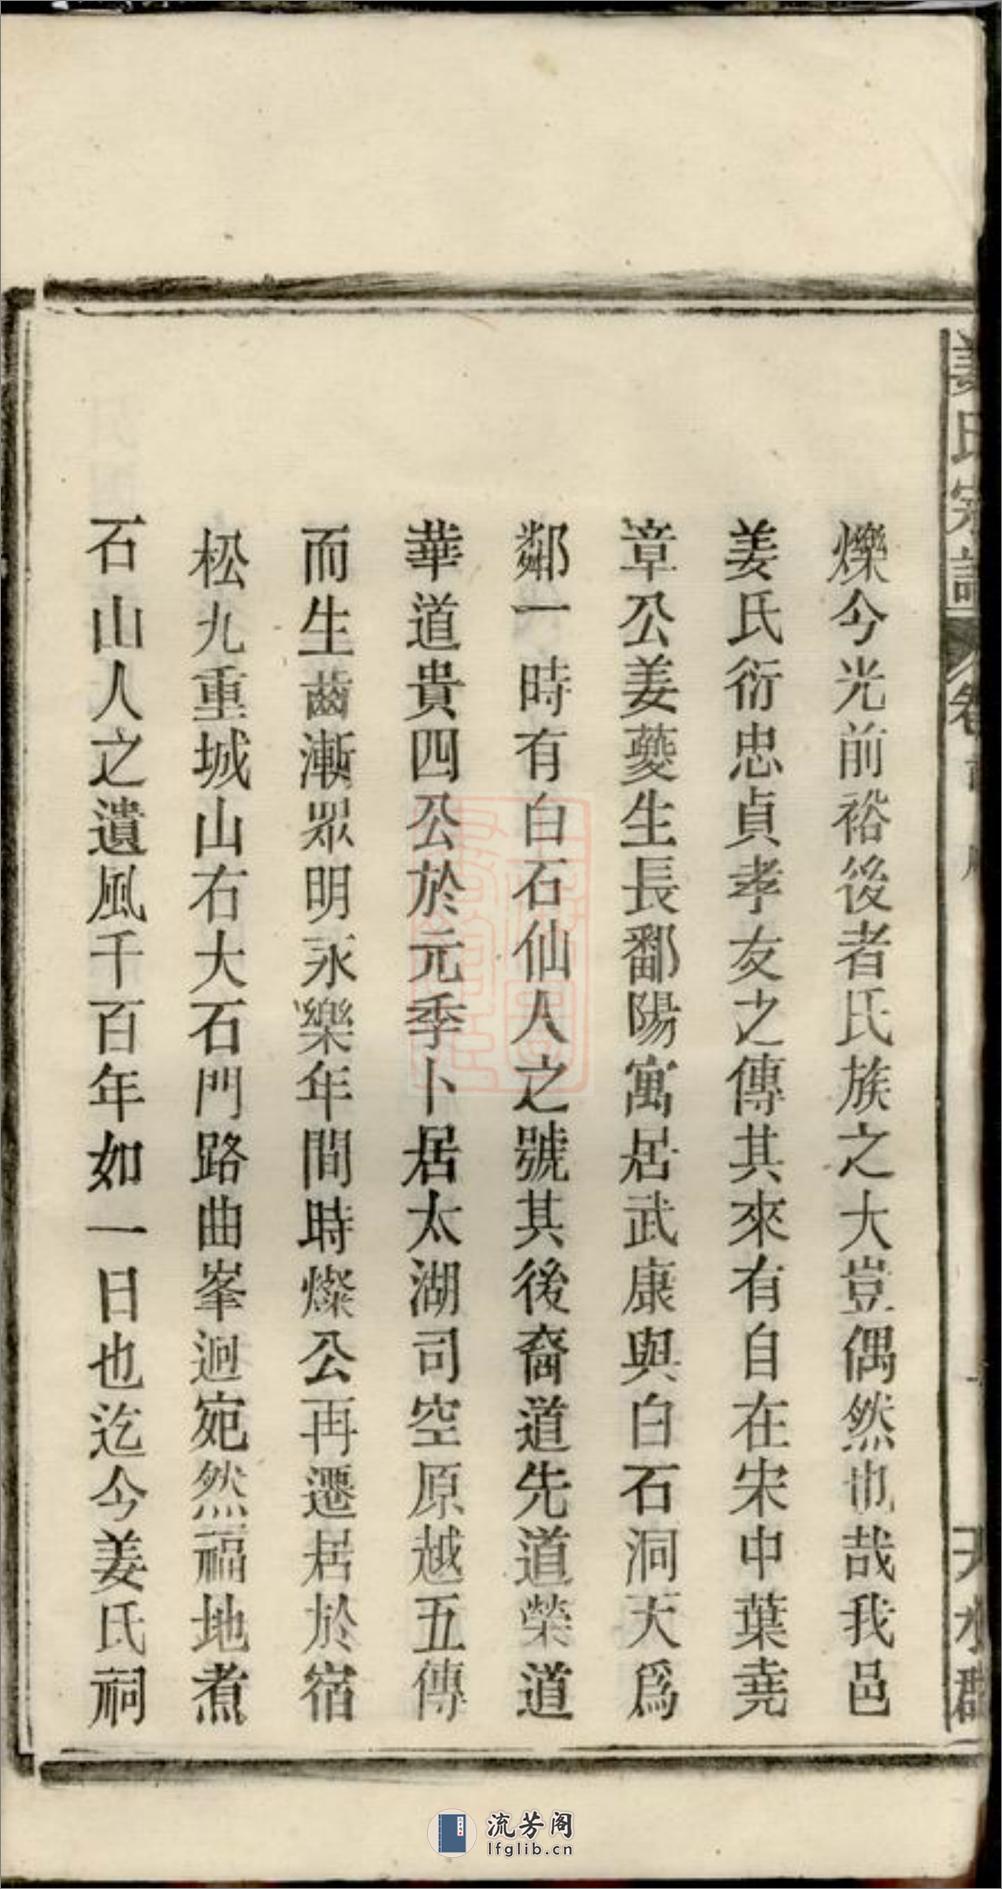 姜氏宗譜 卷首 序 天水郡
爍今光前裕後者氏族之大豈偶然也哉我邑
姜氏衍忠貞孝友之傳其來有自在宋中葉堯
章公姜夔生長鄱陽寓居武康與白石洞天爲
鄰一時有白石仙人之號其後裔道先道榮道
華道貴四公於元季卜居太湖司空原越五傳
而生齒漸眾明永樂年間時燦公再遷居於宿
松九重城山右大石門路曲峯迴宛然福地煮
石山人之遺風千百年如一日也迄今姜氏祠
流芳阁
lfglib.cn